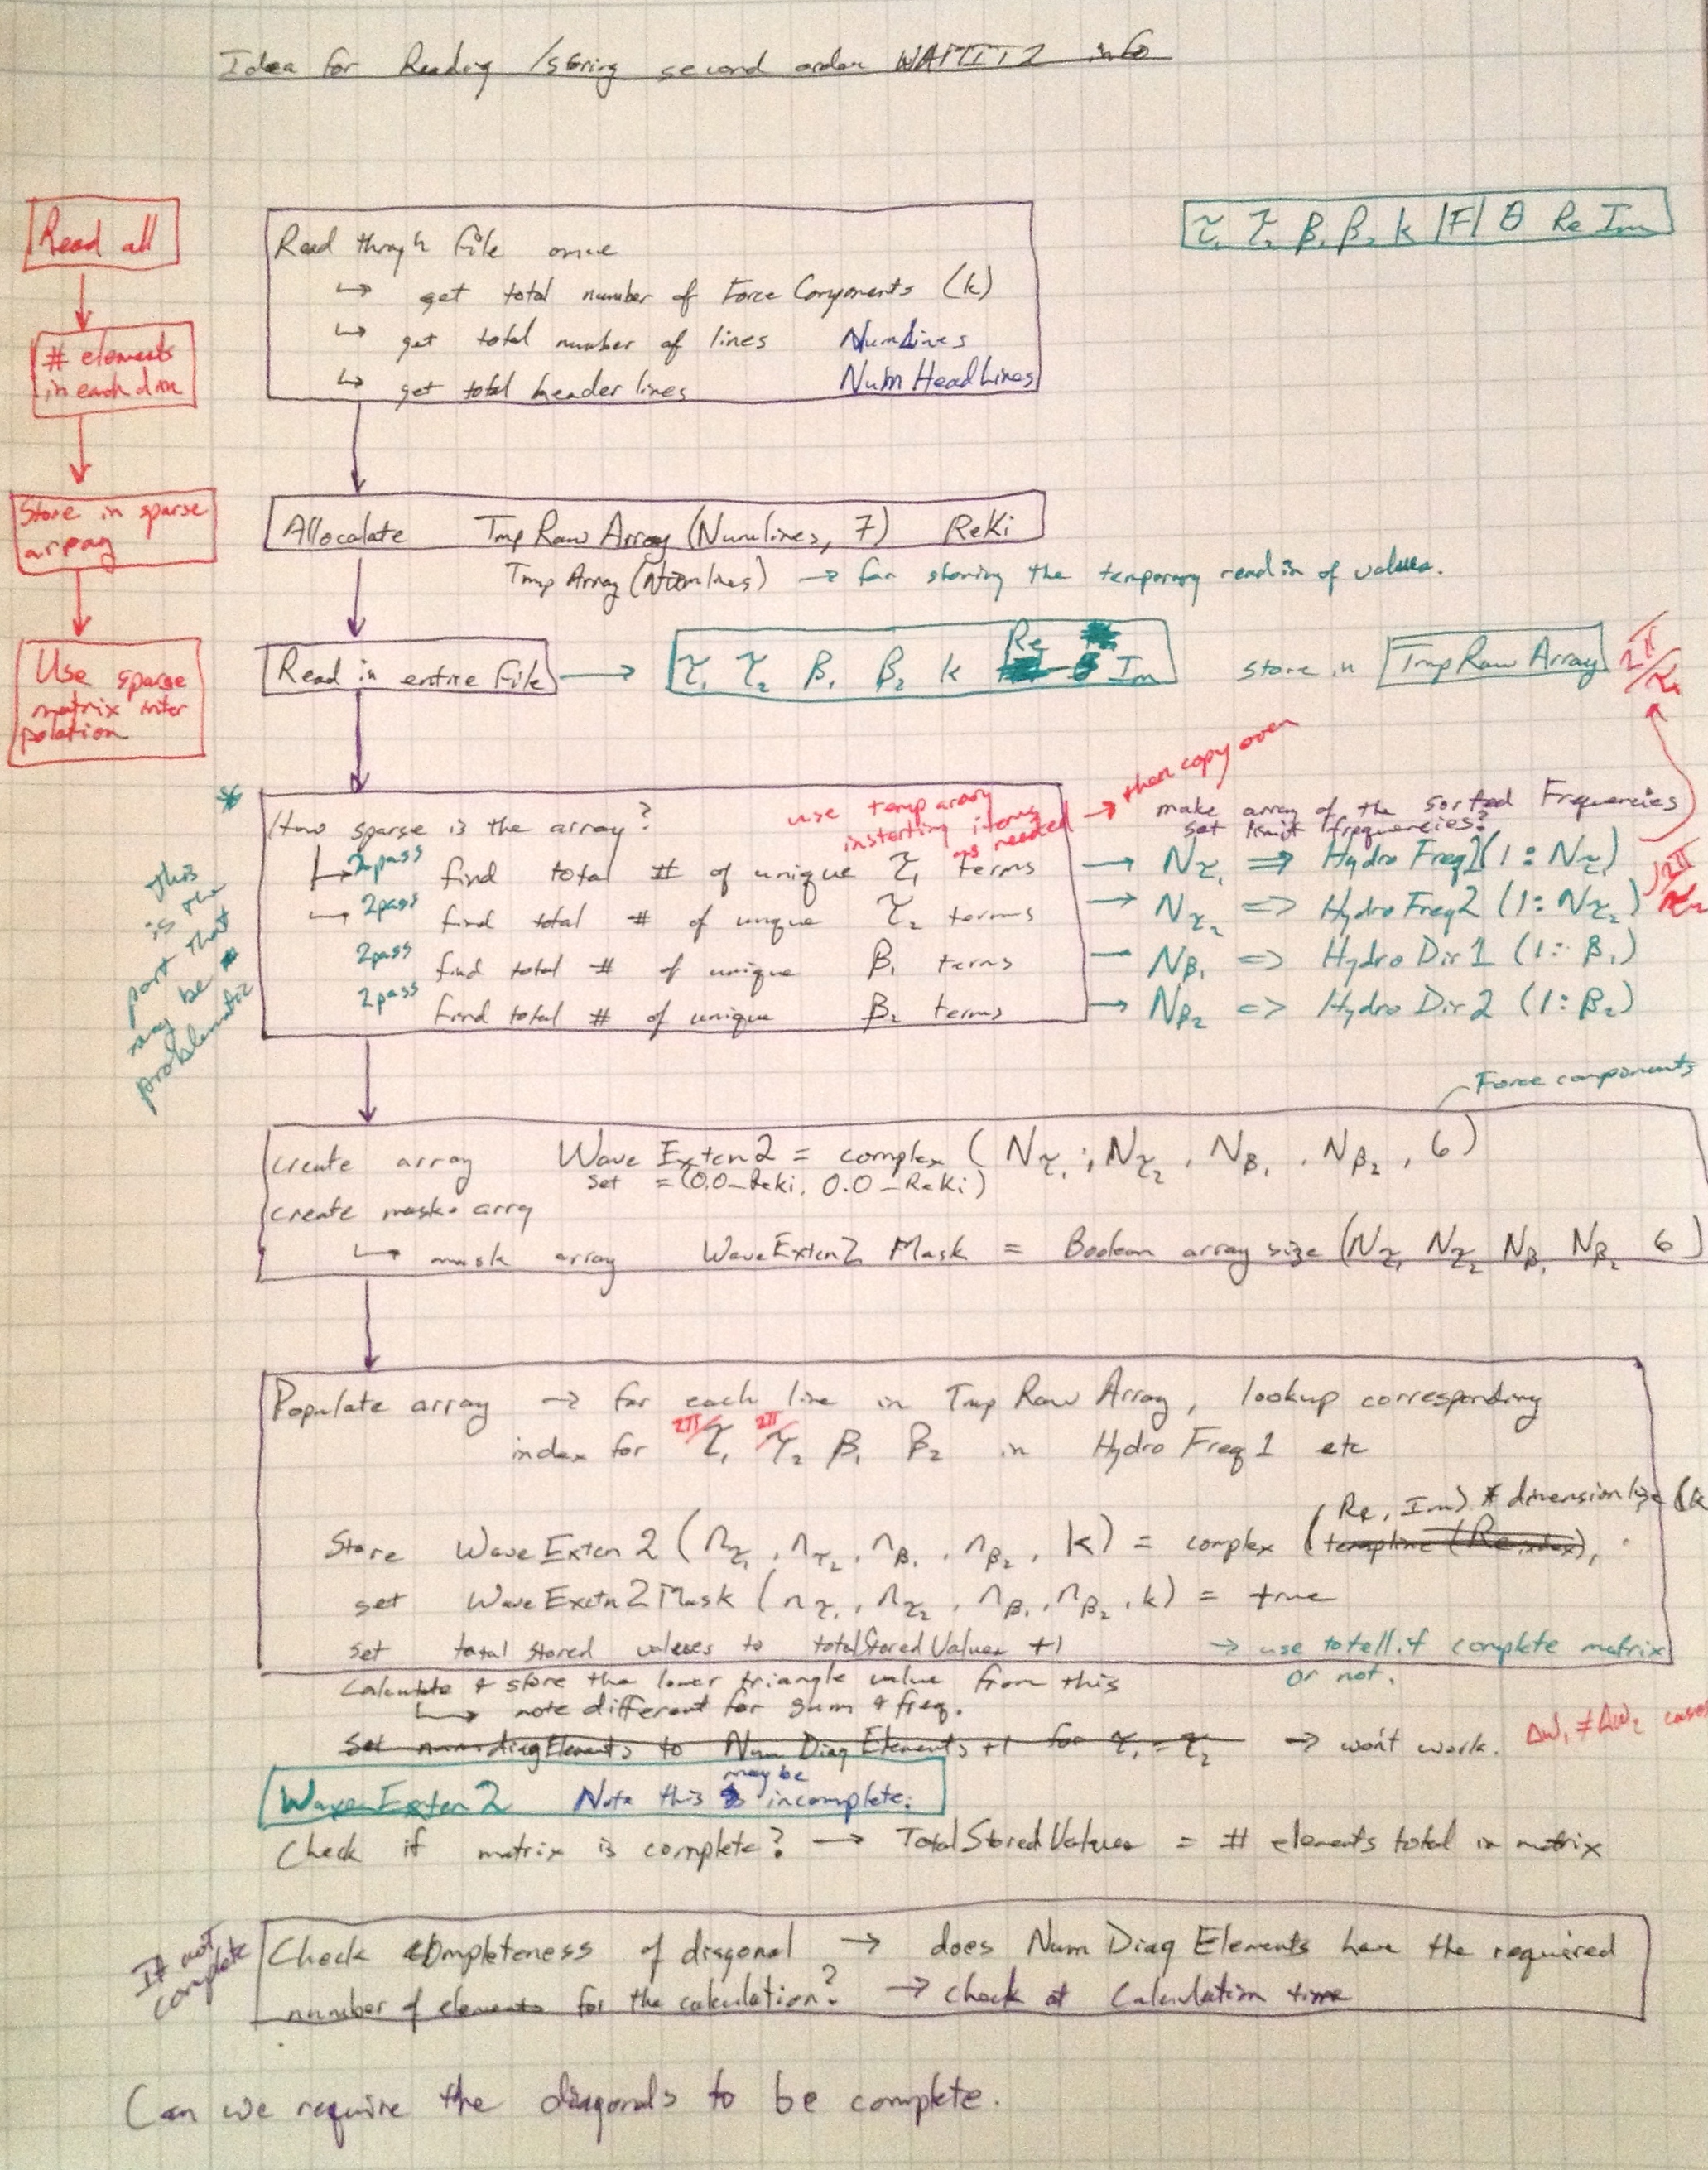 Idea for Reading / storing second order WAMIT 2 info
Read all
# elements
in each dim
Store in sparse
array
Use sparse
matrix inter
polation
τ₁ τ₂ β₁ β₂ k |F| θ Re Im
Read through file once
↳ get total number of Force Components (k)
↳ get total number of lines NumLines
↳ get total header lines Num HeadLines
Allocalate Tmp Raw Array (Numlines, 7) ReKi
Tmp Array (Numlines) → for storing the temporary read in of values.
Read in entire file → τ₁ τ₂ β₁ β₂ k Re Im store in Tmp Raw Array
2π/τ₁
* this
is the
part that
may be
problematic
How sparse is the array?
use temp array
inserting items
as needed → then copy over
make array of the sorted Frequencies
set limit frequencies?
↳ 2pass find total # of unique τ₁ terms → Nτ₁ ⇒ Hydro Freq1 (1: Nτ₁)
↳ 2pass find total # of unique τ₂ terms → Nτ₂ => Hydro Freq2 (1: Nτ₂) 2π/τ₂
2pass find total # of unique β₁ terms — Nβ₁ => Hydro Dir 1 (1: β₁)
2pass find total # of unique β₂ terms → Nβ₂ => Hydro Dir 2 (1: β₂)
Force components
create array Wave Exten2 = complex ( Nτ₁, Nτ₂, Nβ₁, Nβ₂, 6)
set = (0.0_Reki, 0.0_ReKi)
create mask array
↳ mask array WaveExten2 Mask = Boolean array size (Nτ₁ Nτ₂ Nβ₁ Nβ₂ 6)
Populate array → for each line in Tmp Raw Array, lookup corresponding
index for 2π/τ₁ 2π/τ₂ β₁ β₂ in Hydro Freq 1 etc
(Re, Im) * dimensionlize (k
Store Wave Exten 2 (nτ₁, nτ₂, nβ₁, nβ₂, k) = complex (templine (Re index),
set Wave Exctn 2 Mask (nτ₁, nτ₂, nβ₁, nβ₂, k) = true
set total stored values to totalStored Values +1 → use to tell if complete matrix
or not.
Calculate & store the lower triangle value from this
↳ note different for sum & freq.
Set num diag Elements to Num Diag Elements +1 for τ₁ = τ₂ → won't work. Δω₁ ≠ Δω₂ cases
Wave Exten 2 Note this may be incomplete.
Check if matrix is complete? → TotalStoredValues = # elements total in matrix
If not
complete
Check completeness of diagonal → does Num Diag Elements have the required
number of elements for the calculation? → check at Calculation time
Can we require the diagonals to be complete.